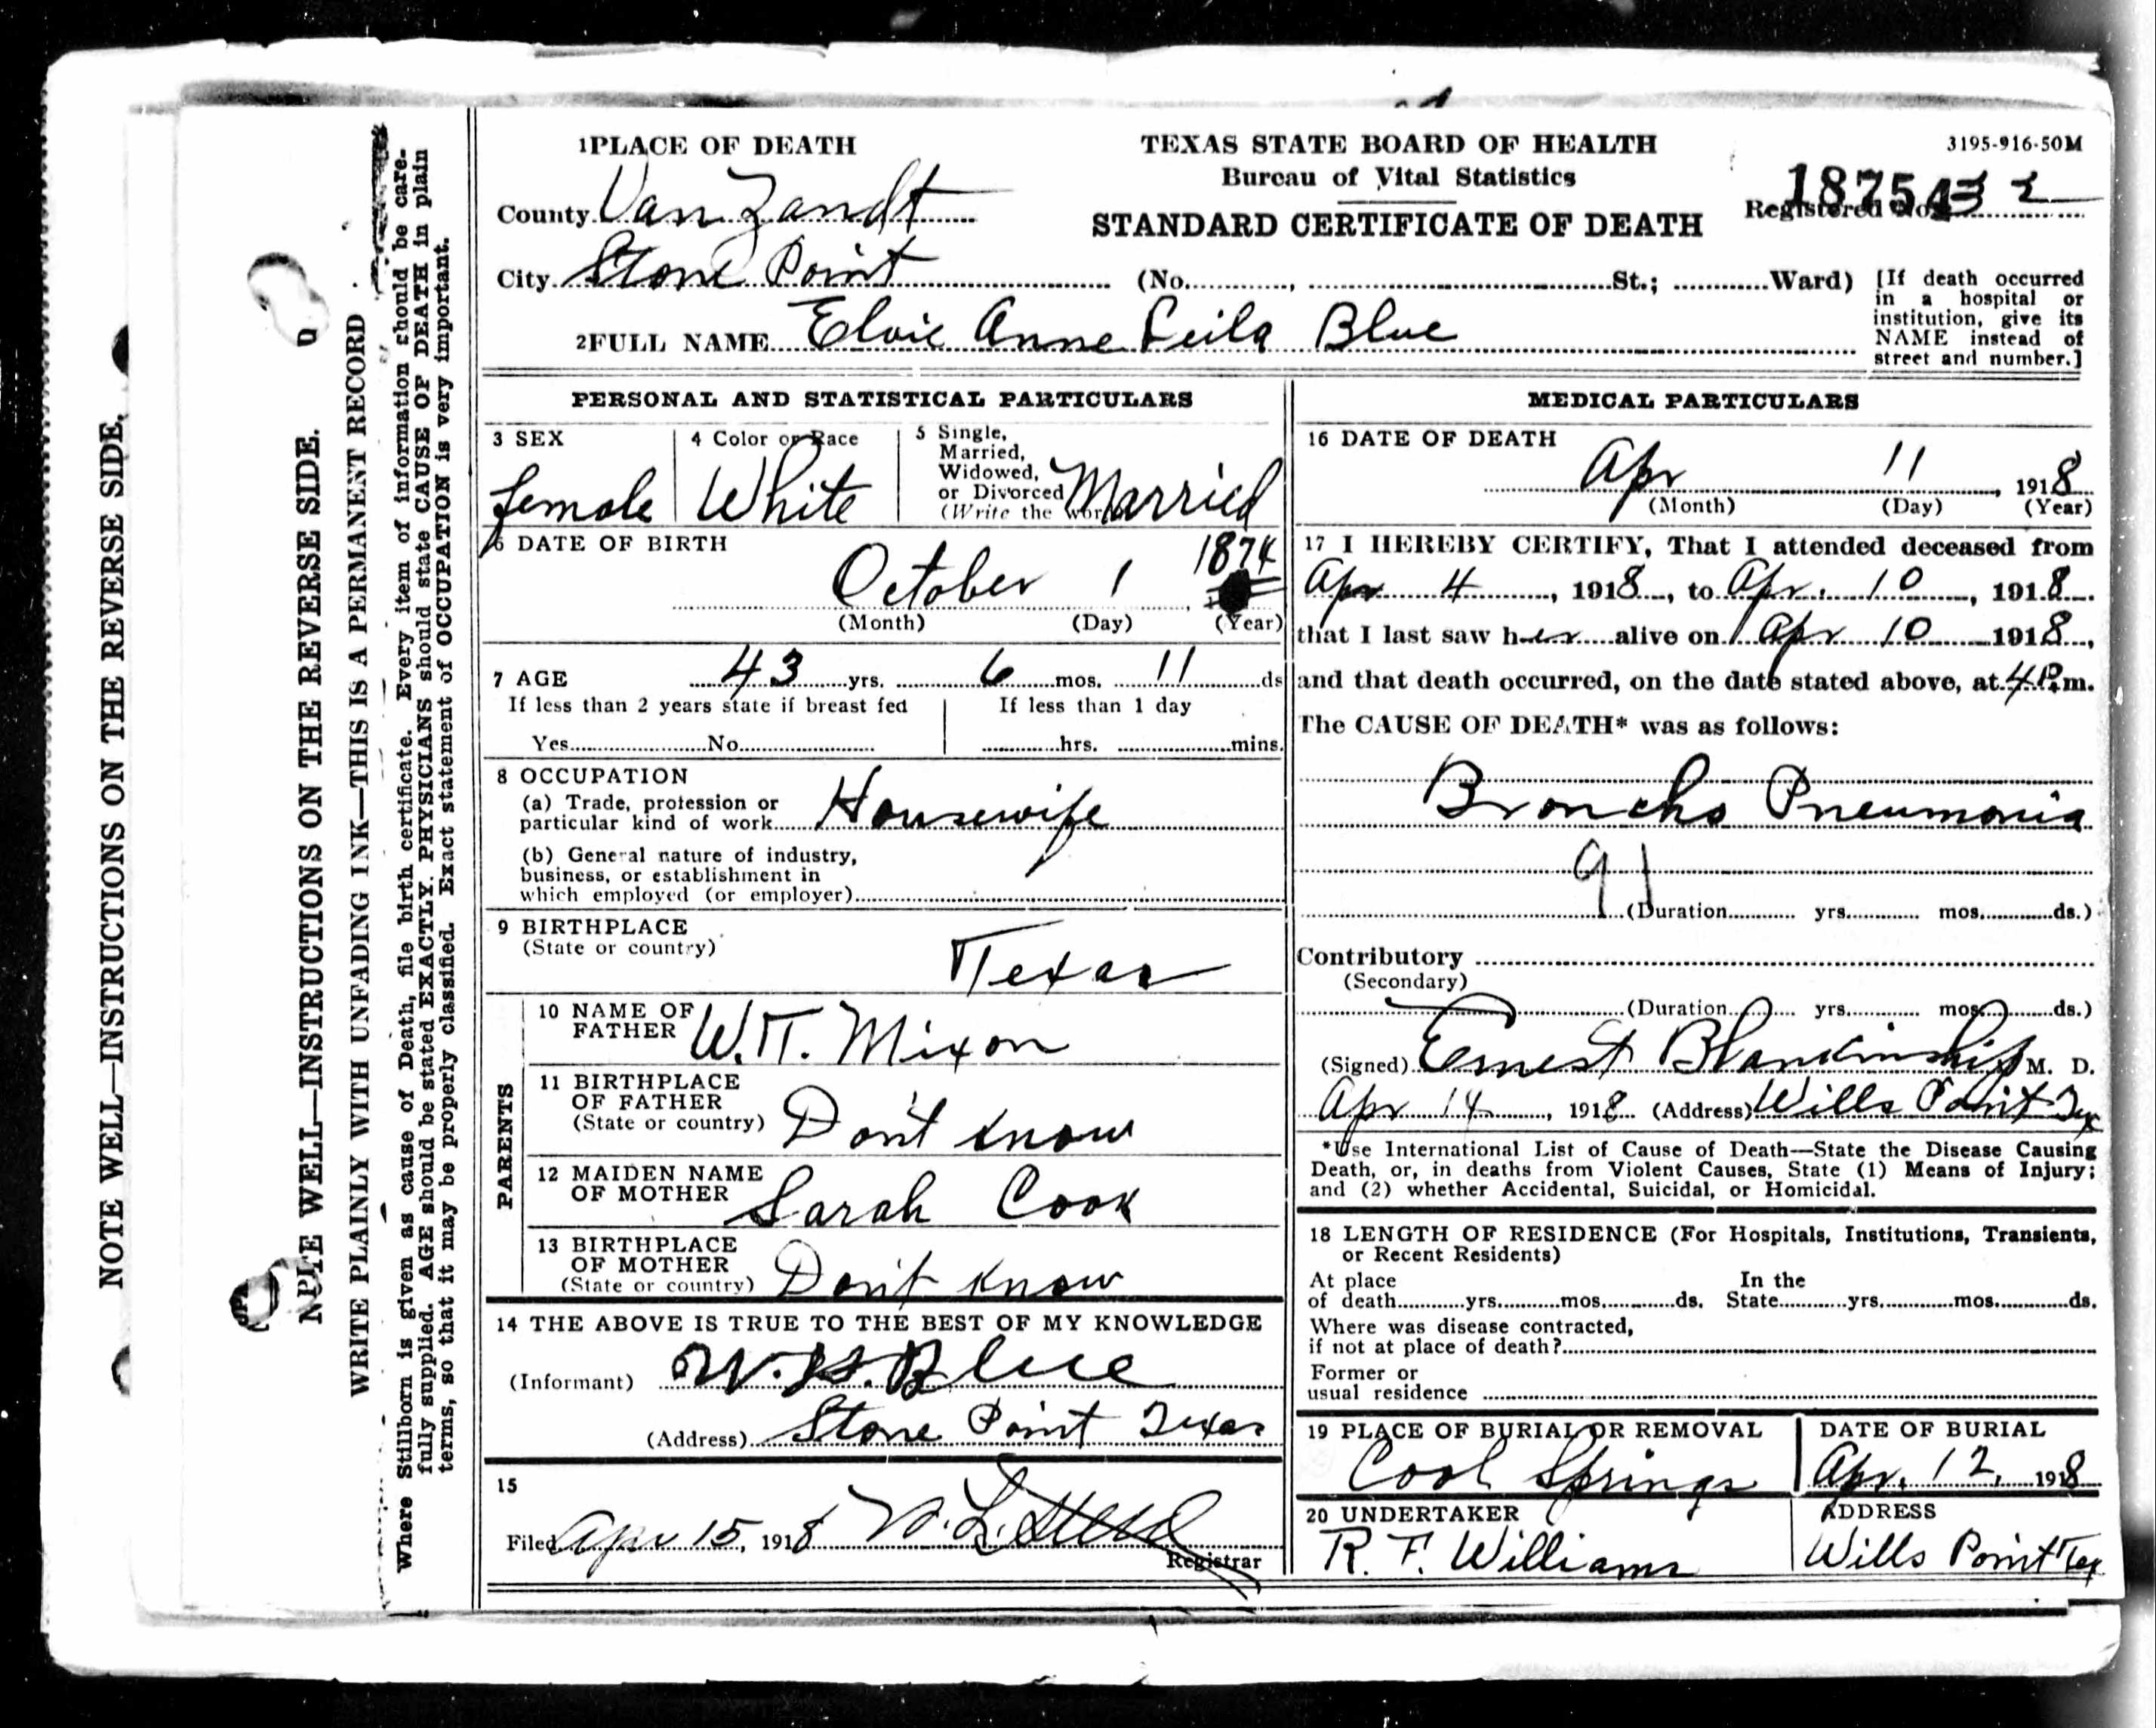 NOTE WELL—INSTRUCTIONS ON THE REVERSE SIDE.
NOTE WELL—INSTRUCTIONS ON THE REVERSE SIDE.
WRITE PLAINLY WITH UNFADING INK—THIS IS A PERMANENT RECORD
Where Stillborn is given as cause of Death, file birth certificate. Every item of information should be care-
fully supplied. AGE should be stated EXACTLY. PHYSICIANS should state CAUSE OF DEATH in plain
terms, so that it may be properly classified. Exact statement of OCCUPATION is very important.
1PLACE OF DEATH
County Van Zandt
City Stone Point
TEXAS STATE BOARD OF HEALTH
Bureau of Vital Statistics
STANDARD CERTIFICATE OF DEATH
3195-916-50M
18754
Registered No. 32
(No. , St.; Ward)
[If death occurred
in a hospital or
institution, give its
NAME instead of
street and number.]
2FULL NAME Elvie Anne Leila Blue
PERSONAL AND STATISTICAL PARTICULARS
3 SEX
female
4 Color or Race
White
5 Single,
Married,
Widowed,
or Divorced
(Write the word)
Married
6 DATE OF BIRTH
October 1 1874
(Month) (Day) (Year)
7 AGE 43 yrs. 6 mos. 11 ds
If less than 2 years state if breast fed
Yes No
If less than 1 day
hrs. mins.
8 OCCUPATION
(a) Trade, profession or
particular kind of work Housewife
(b) General nature of industry,
business, or establishment in
which employed (or employer)
9 BIRTHPLACE
(State or country)
Texas
PARENTS
10 NAME OF
FATHER W.T. Mixon
11 BIRTHPLACE
OF FATHER
(State or country) Don't know
12 MAIDEN NAME
OF MOTHER Sarah Cook
13 BIRTHPLACE
OF MOTHER
(State or country) Don't know
14 THE ABOVE IS TRUE TO THE BEST OF MY KNOWLEDGE
(Informant) W.H. Blue
(Address) Stone Point Texas
15
Filed Apr 15, 1918
Registrar
MEDICAL PARTICULARS
16 DATE OF DEATH
Apr 11, 1918
(Month) (Day) (Year)
17 I HEREBY CERTIFY, That I attended deceased from
Apr 4, 1918, to Apr. 10, 1918.
that I last saw her alive on Apr 10 1918,
and that death occurred, on the date stated above, at 4 P.m.
The CAUSE OF DEATH* was as follows:
Broncho Pneumonia
91
(Duration yrs. mos. ds.)
Contributory
(Secondary)
(Duration yrs. mos. ds.)
(Signed) Ernest Blankinship M. D.
Apr 14, 1918 (Address) Wills Point Tex
*Use International List of Cause of Death—State the Disease Causing
Death, or, in deaths from Violent Causes, State (1) Means of Injury;
and (2) whether Accidental, Suicidal, or Homicidal.
18 LENGTH OF RESIDENCE (For Hospitals, Institutions, Transients,
or Recent Residents)
At place
of death yrs. mos. ds.
In the
State yrs. mos. ds.
Where was disease contracted,
if not at place of death?
Former or
usual residence
19 PLACE OF BURIAL OR REMOVAL
Cool Springs
DATE OF BURIAL
Apr. 12, 1918
20 UNDERTAKER
R. F. Williams
ADDRESS
Wills Point Tex